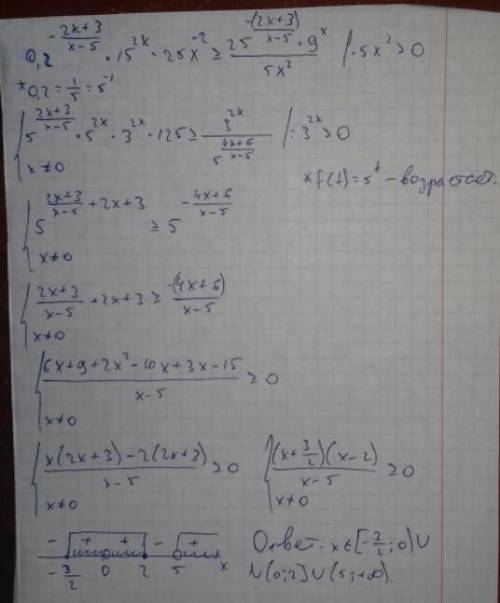 0,2^{-\frac{2x+3}{x-5}} · 15^{2x} · 25x^{-2} ≥ \frac{25^{\frac{-(2x+3)}{x-5}} · 9^x}{5x^2} | · 5x^2 > 0
*0,2 = \frac{1}{5} = 5^{-1}
{ 5^{\frac{2x+3}{x-5}} · 5^{2x} · 3^{2x} · 125 ≥ \frac{3^{2x}}{5^{\frac{4x+6}{x-5}}} | : 3^{2x} > 0
x ≠ 0
* f(t) = 5^t – возрастает.
{ 5^{\frac{2x+3}{x-5} + 2x+3} ≥ 5^{-\frac{4x+6}{x-5}}
x ≠ 0
{ \frac{2x+3}{x-5} + 2x+3 ≥ \frac{-(4x+6)}{x-5}
x ≠ 0
{ \frac{6x+9+2x^2-10x+3x-15}{x-5} ≥ 0
x ≠ 0
{ \frac{x(2x+3)-2(2x+3)}{x-5} ≥ 0 { \frac{(x+\frac{3}{2})(x-2)}{x-5} ≥ 0
x ≠ 0 x ≠ 0
– + + – +
-\frac{3}{2} 0 2 5 x
Ответ: x ∈ [-\frac{3}{2}; 0) ∪
∪ (0; 2] ∪ (5; +∞).